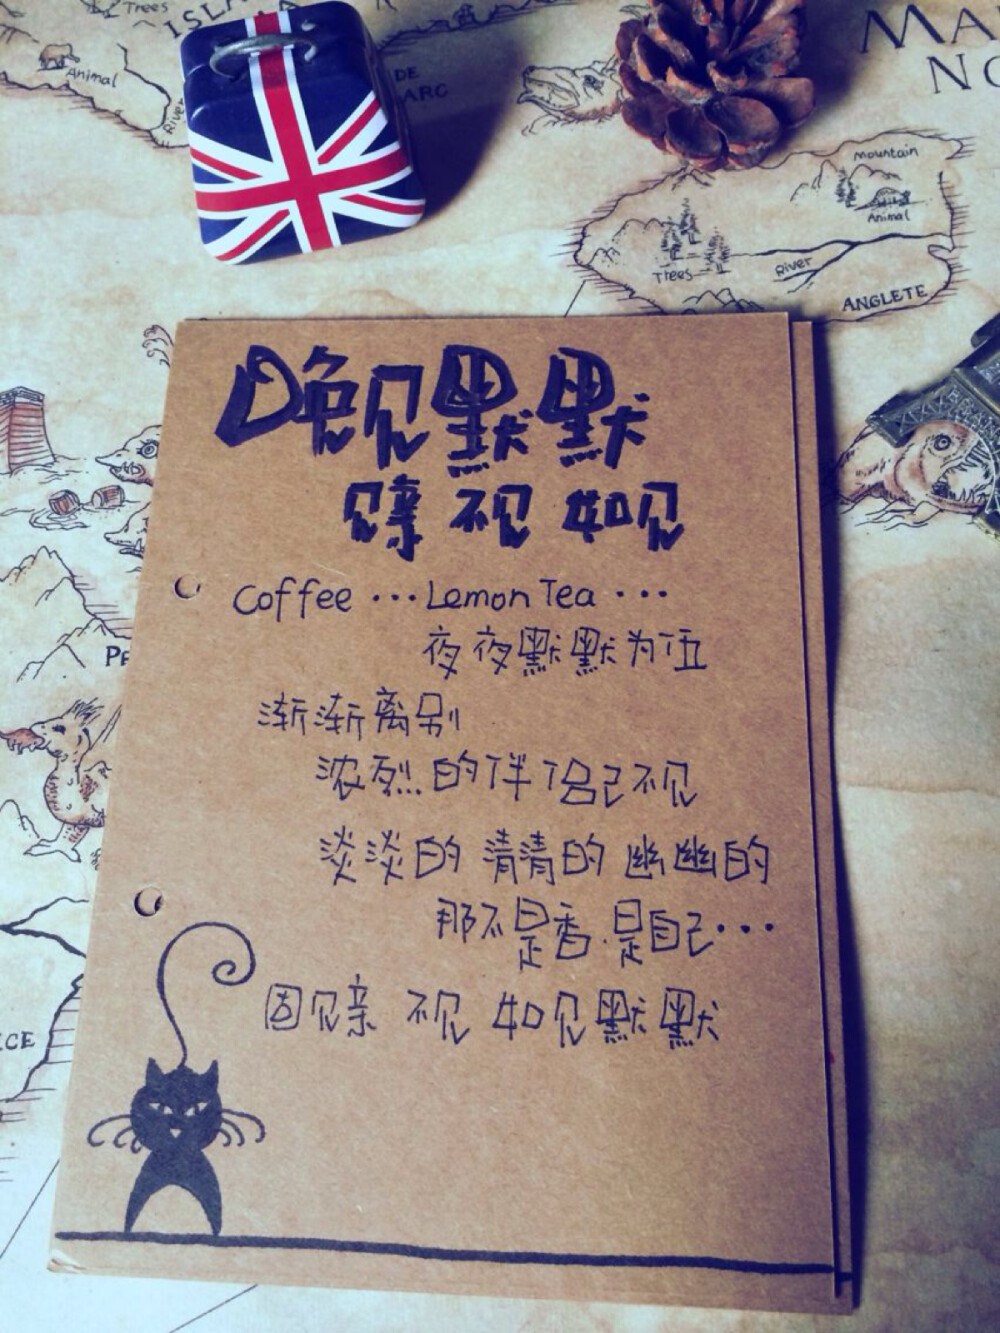 晚见默默
见亲 不见 如见
Coffee ··· Lemon Tea ···
夜夜默默为伍
渐渐离别
浓烈的伴侣已不见
淡淡的 清清的 幽幽的
那不是香.是自己···
固见亲 不见 如见默默
Trees
Animal
River
DE
ARC
MA
NO
mountain
Animal
Trees
River
ANGLETE